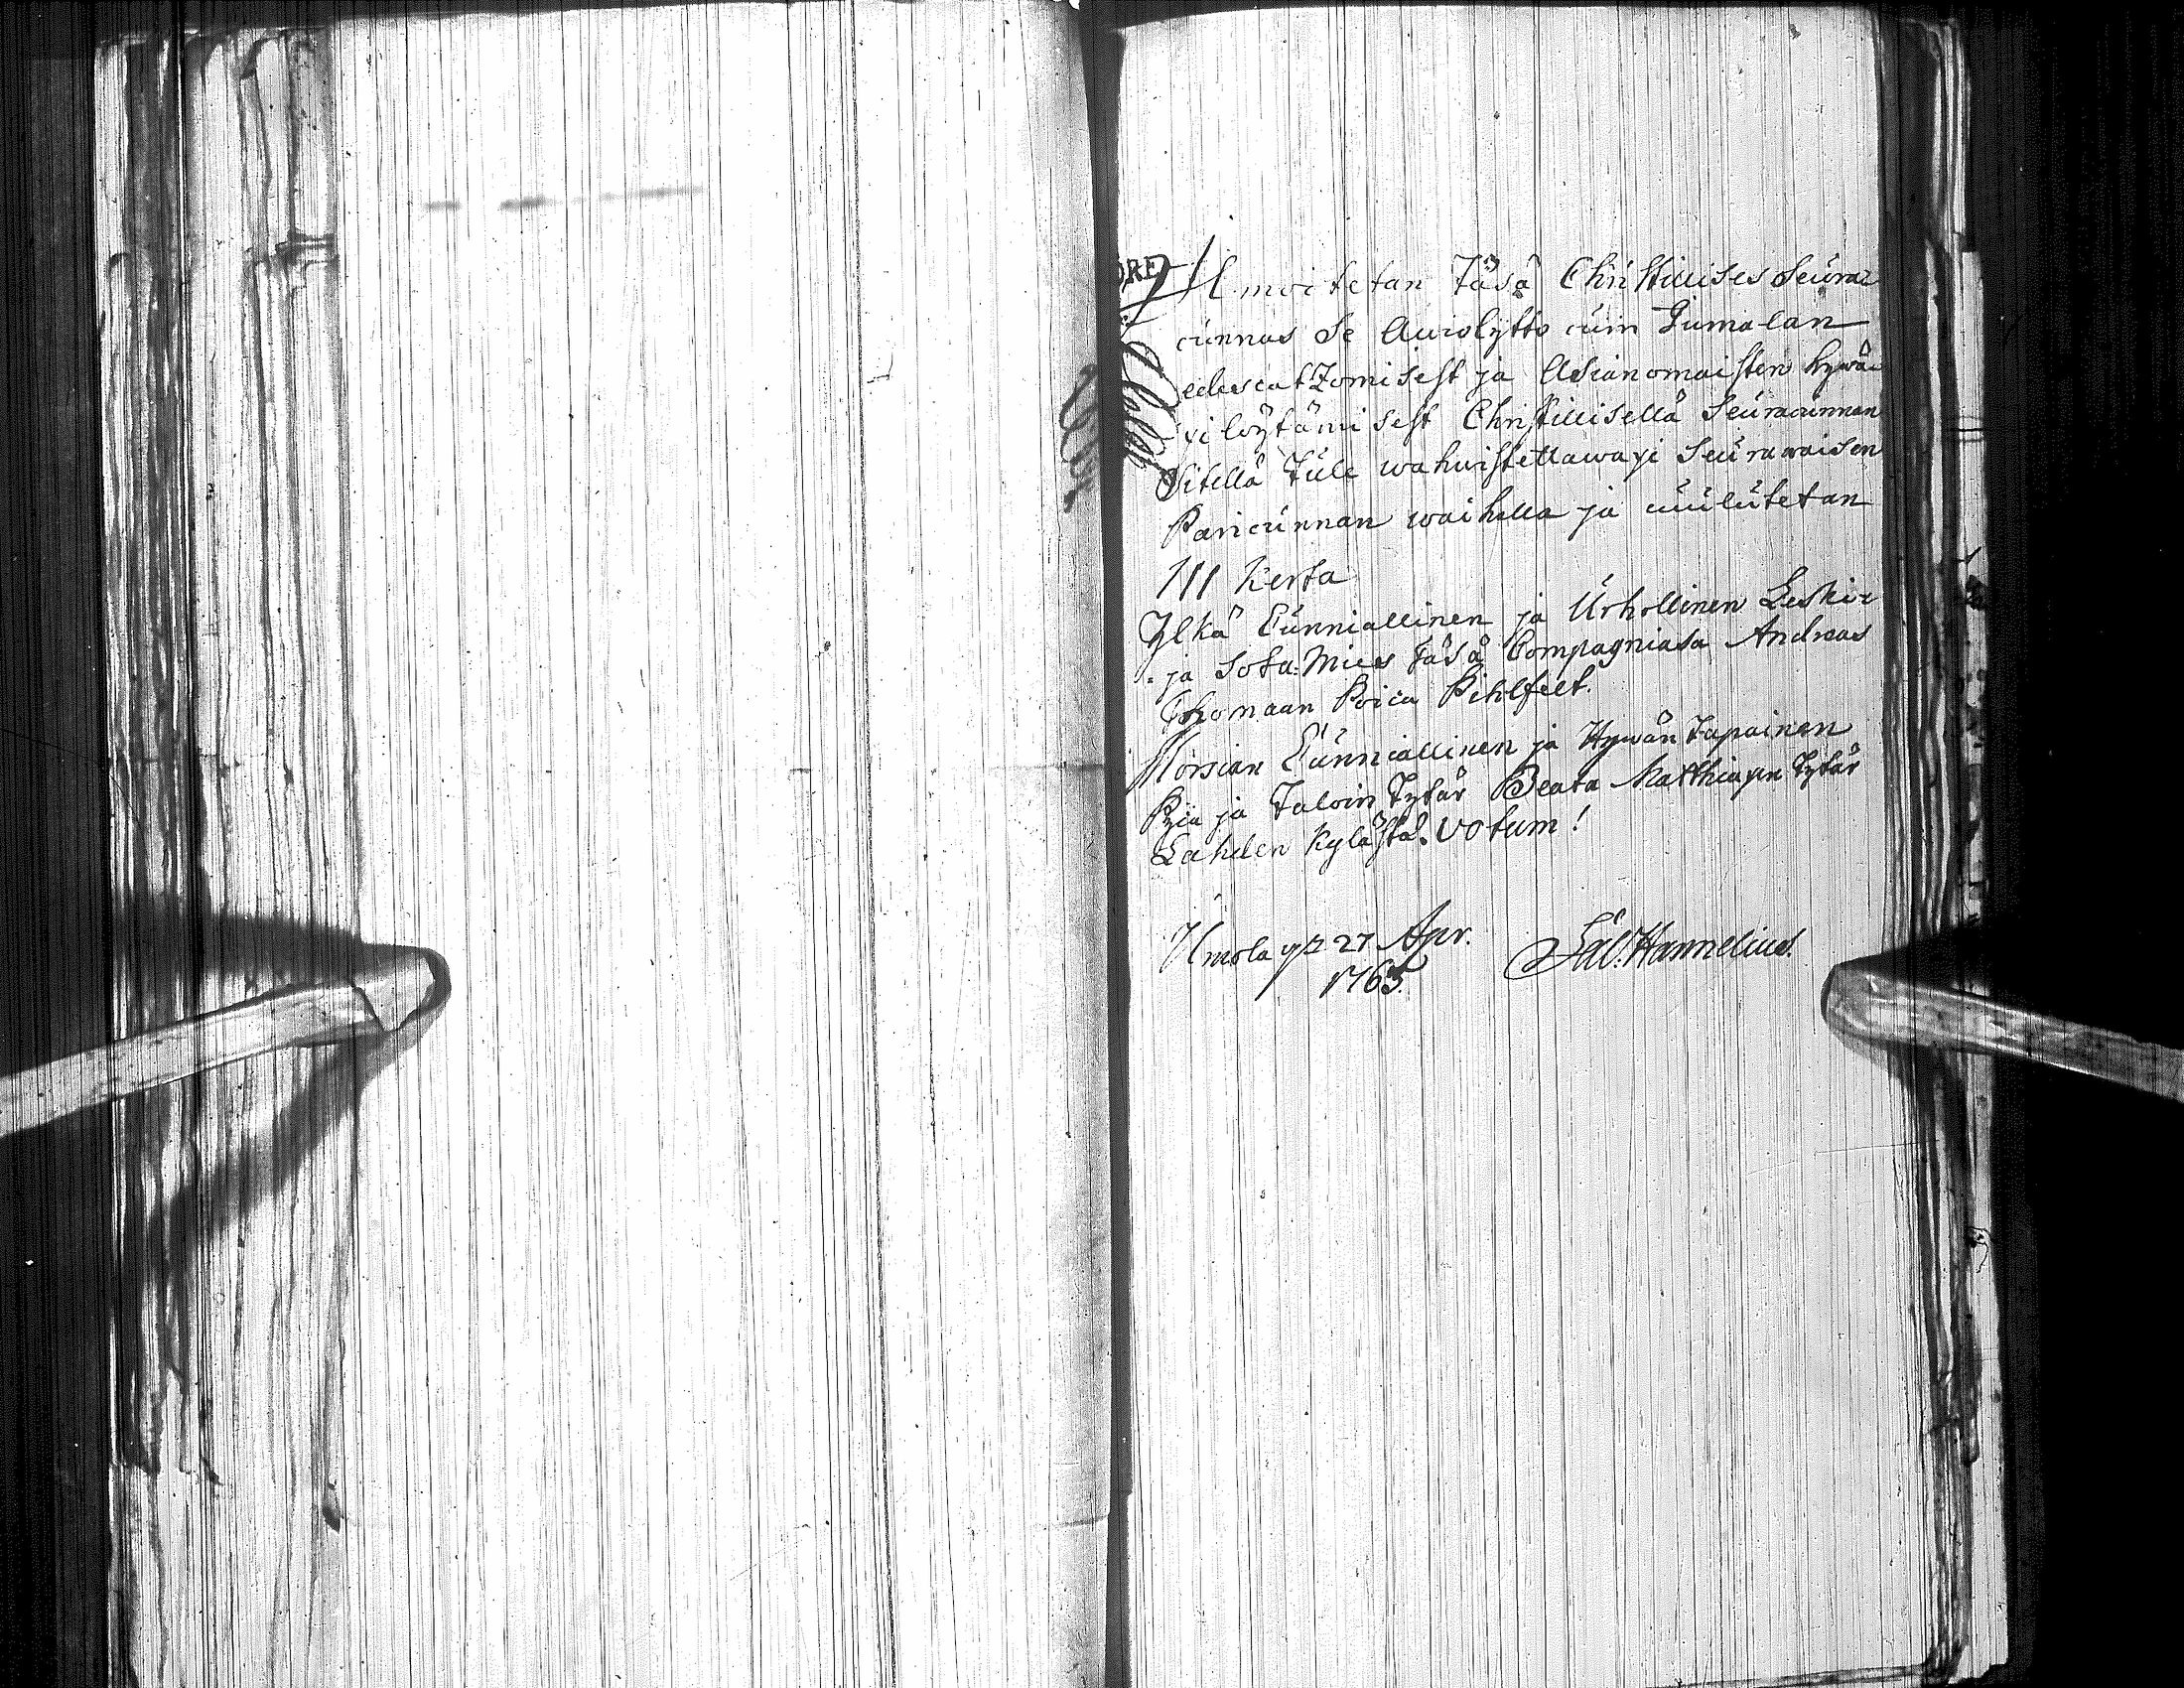 Ilmoitetan Täsä Christillises Seura-
cunnas Se Aviolijtto cuin Jumalan
edescatZomisest ja Asianomaisten hywä-
xi löytämisest Christillisellä Seuracunnan
Sitellä Tule wahwistettawaxi Seurawaisen
Paricunnan waihella ja cuulutetan
III Kerta
Ylkä Cunniallinen ja Urhollinen Leski-
ja Sota-Mies täsä Compagniasa Andreas
Thomaan Poica Pihlfelt.
Morsian Cunniallinen ja Hywän Tapainen
Pyia ja Taloin Tytär Beata Matthiaxen Tytär
Lahden Kylästä. Votum!
Ilmola 27 Apr.
1765.
Sal. Hannelius.